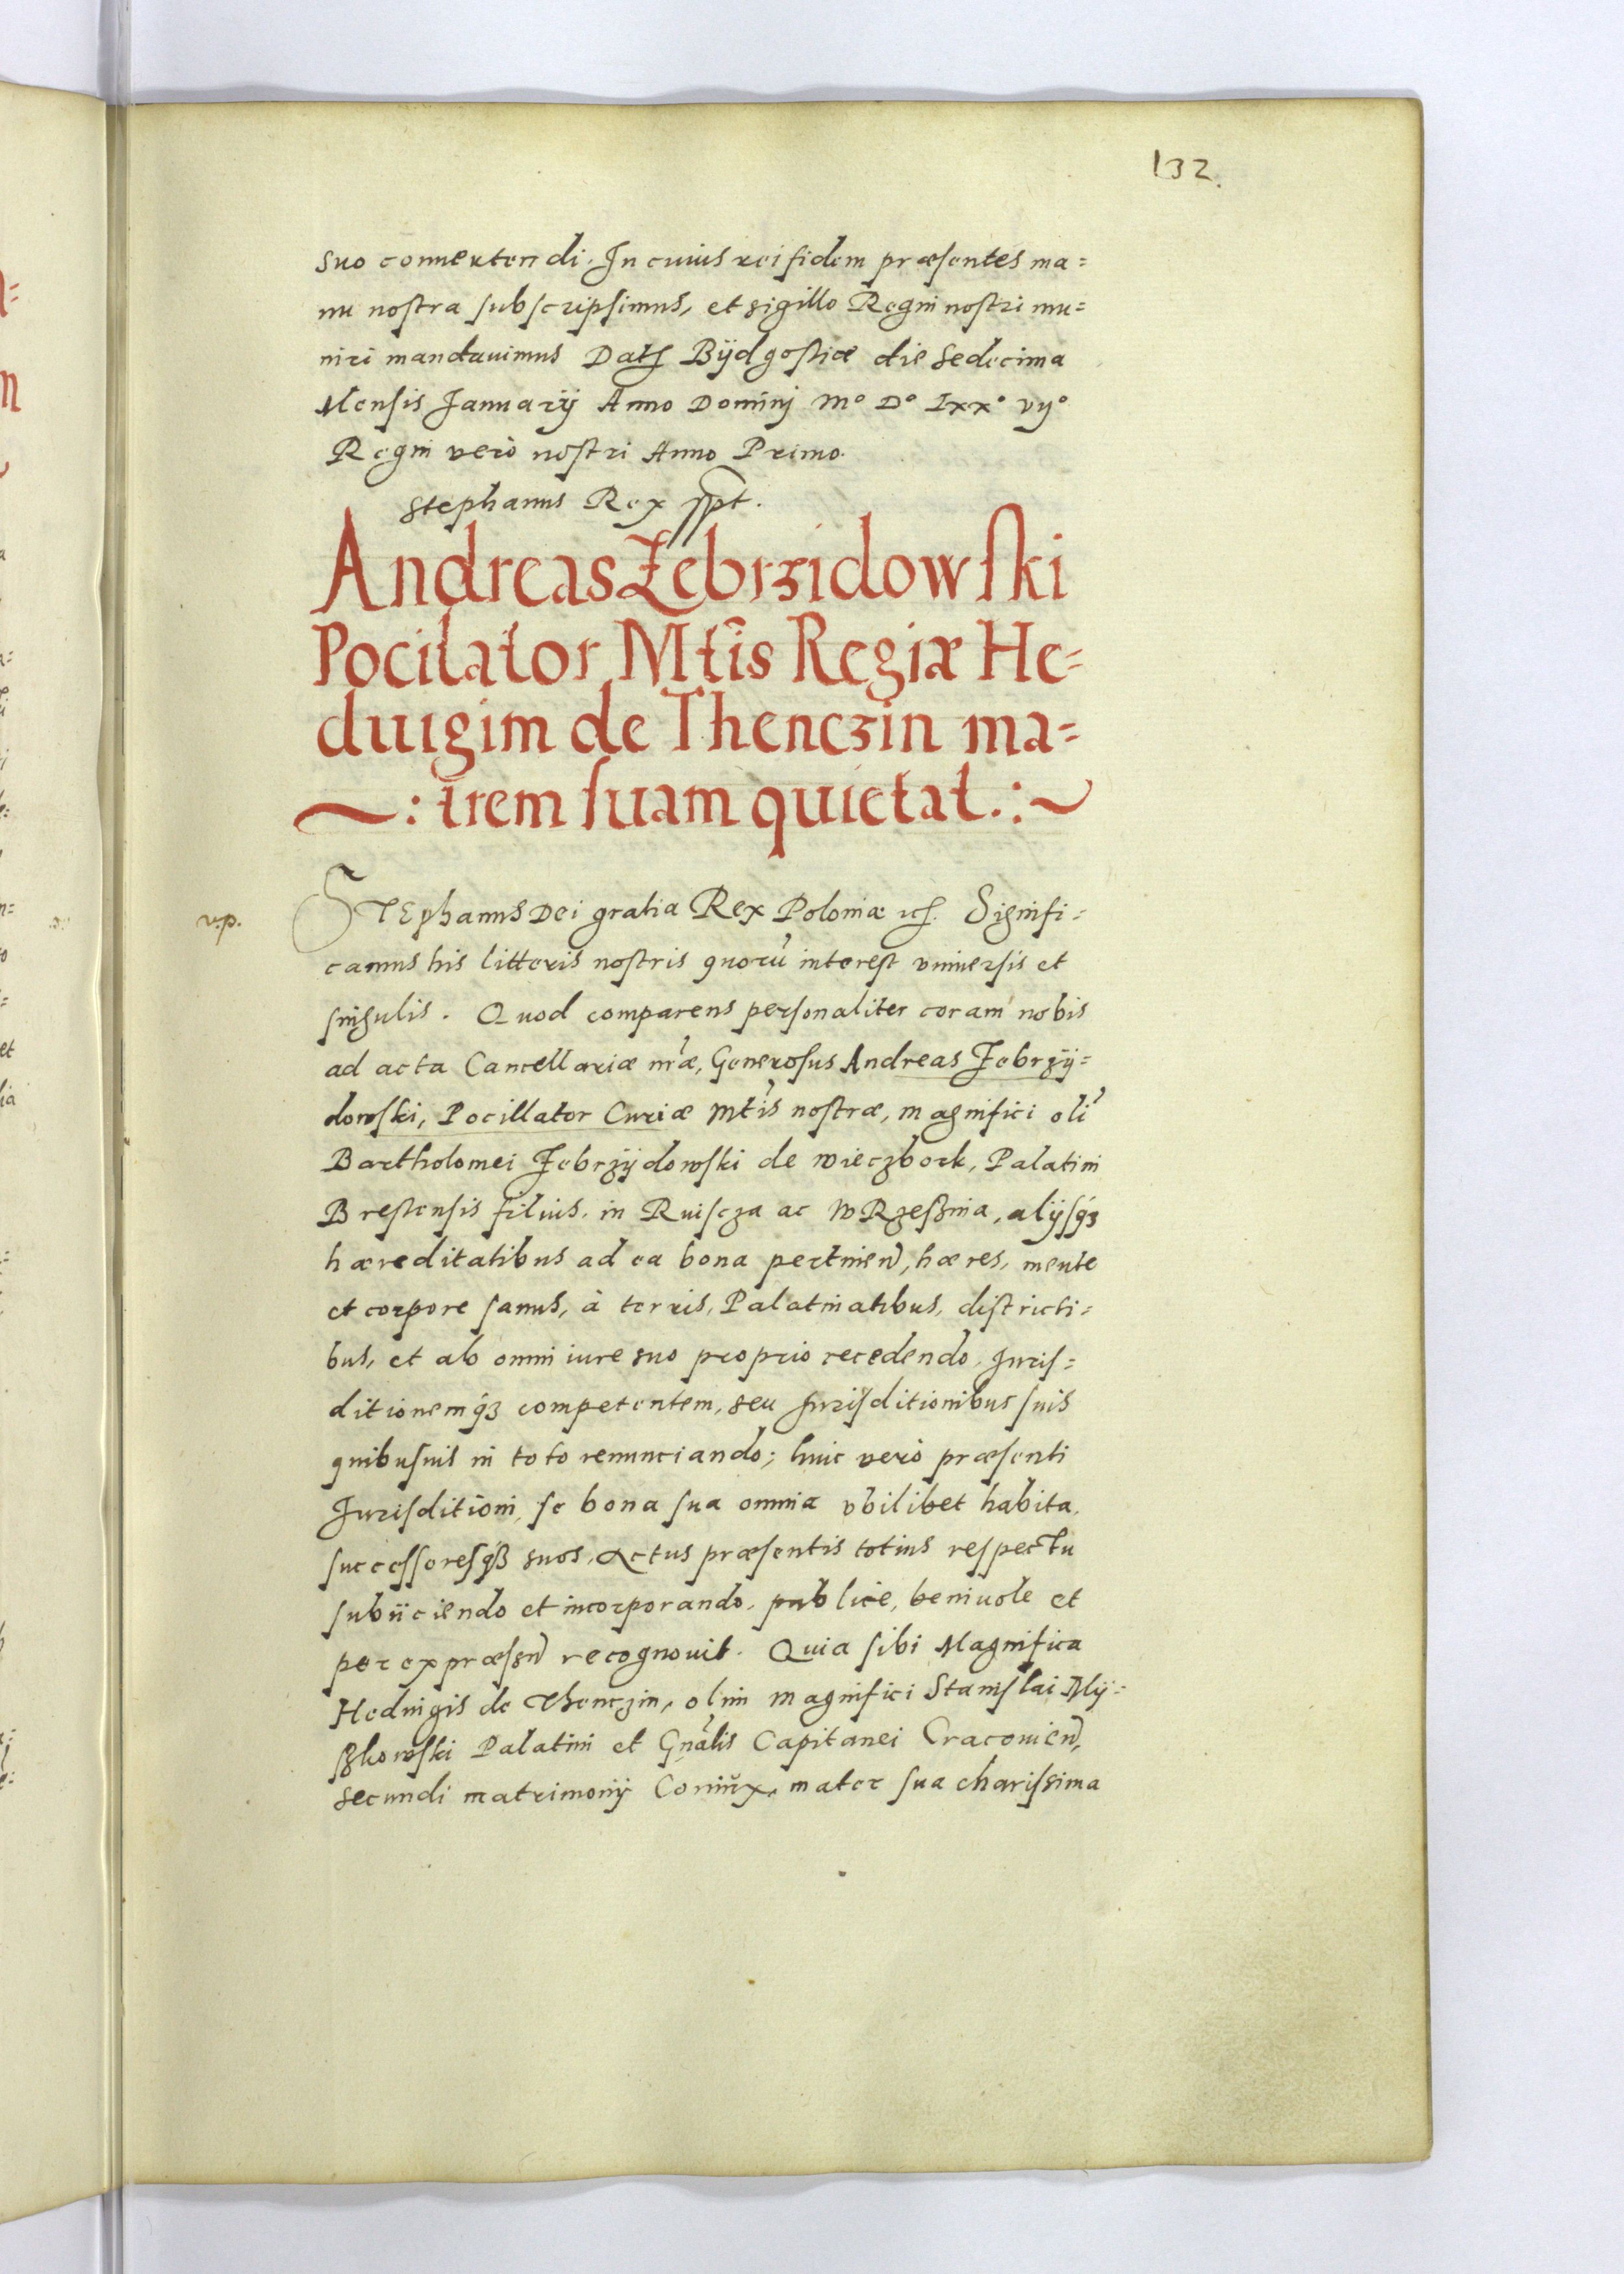 132.
suo conuertendi. In cuius rei fidem præsentes ma=
nu nostra subscripsimus, et sigillo Regni nostri mu=
niri mandauimus Dat Bÿdgostiæ die sedecima
Mensis Januarÿ Anno Dominj M° D° Lxx° vÿ°
Regni verò nostri Anno Primo.
Stephanus Rex sspt.
Andreas Zebrzidowski
Pocilator Mtis Regiæ He=
duigim de Thenczin ma=
trem suam quietat.
v.p.
STEphanus Dei gratia Rex Poloniæ etc. Signifi=
camus his litteris nostris quorũ interest vniuersis et
singulis. Quod comparens personaliter coram nobis
ad acta Cancellariæ nr̃æ, Generosus Andreas Zebrzÿ=
dowski, Pocillator Curiæ Mtis nostræ, magnifici oli
Bartholomei Zebrzÿdowski de wieczbork, Palatini
Brestensis filius, in Ruiscza ac W Rzesznia, alÿsq3
hæreditatibus ad ea bona pertinen, hæres, mente
et corpore sanus, à terris, Palatinatibus, districti=
bus, et ab omni iure suo proprio recedendo, Juris=
ditionemq3 competentem, seu Jurisditionibus suis
quibusuis in toto renunciando; huic verò præsenti
Jurisditioni, se bona sua omnia vbilibet habita,
successoresq3 suos, Actus præsentis totius respectu
subÿciendo et incorporando, publice, beniuole et
per expræsen recognouit. Quia sibi Magnifica
Heduigis de Thenczin, olim magnifici Stanislai Mÿ=
szkowski Palatini et Gnãlis Capitanei Cracouien,
secundi matrimonÿ Coniũx, mater sua charissima